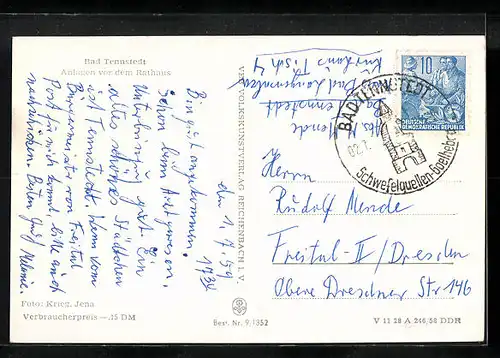 Bad Tennstedt
Anlagen vor dem Rathaus
den 1.7.59
Bin gut angekommen, 17³⁴
schon beim Arzt gewesen.
Unterbringung gut. Ein
altes schönes Städtchen
ist Tennstedt. Wenn vom
Bürgermeister von Freital
Post für mich kommt, bitte mir
nachschicken. Besten Gruß
Foto: Krieg, Jena
Verbraucherpreis -.15 DM
VEB VOLKSKUNSTVERLAG REICHENBACH I. V
Best. Nr. 9/1352
Mende
Bad Langensalza
Kurhaus Tisch 4
10
DEUTSCHE
DEMOKRATISCHE REPUBLIK
BAD TENNSTEDT
02.7.
Schwefelquellen
Herrn
Rudolf Mende
Freital-II/Dresden
Obere Dresdner Str 146
V 11 28 A 246/58 DDR